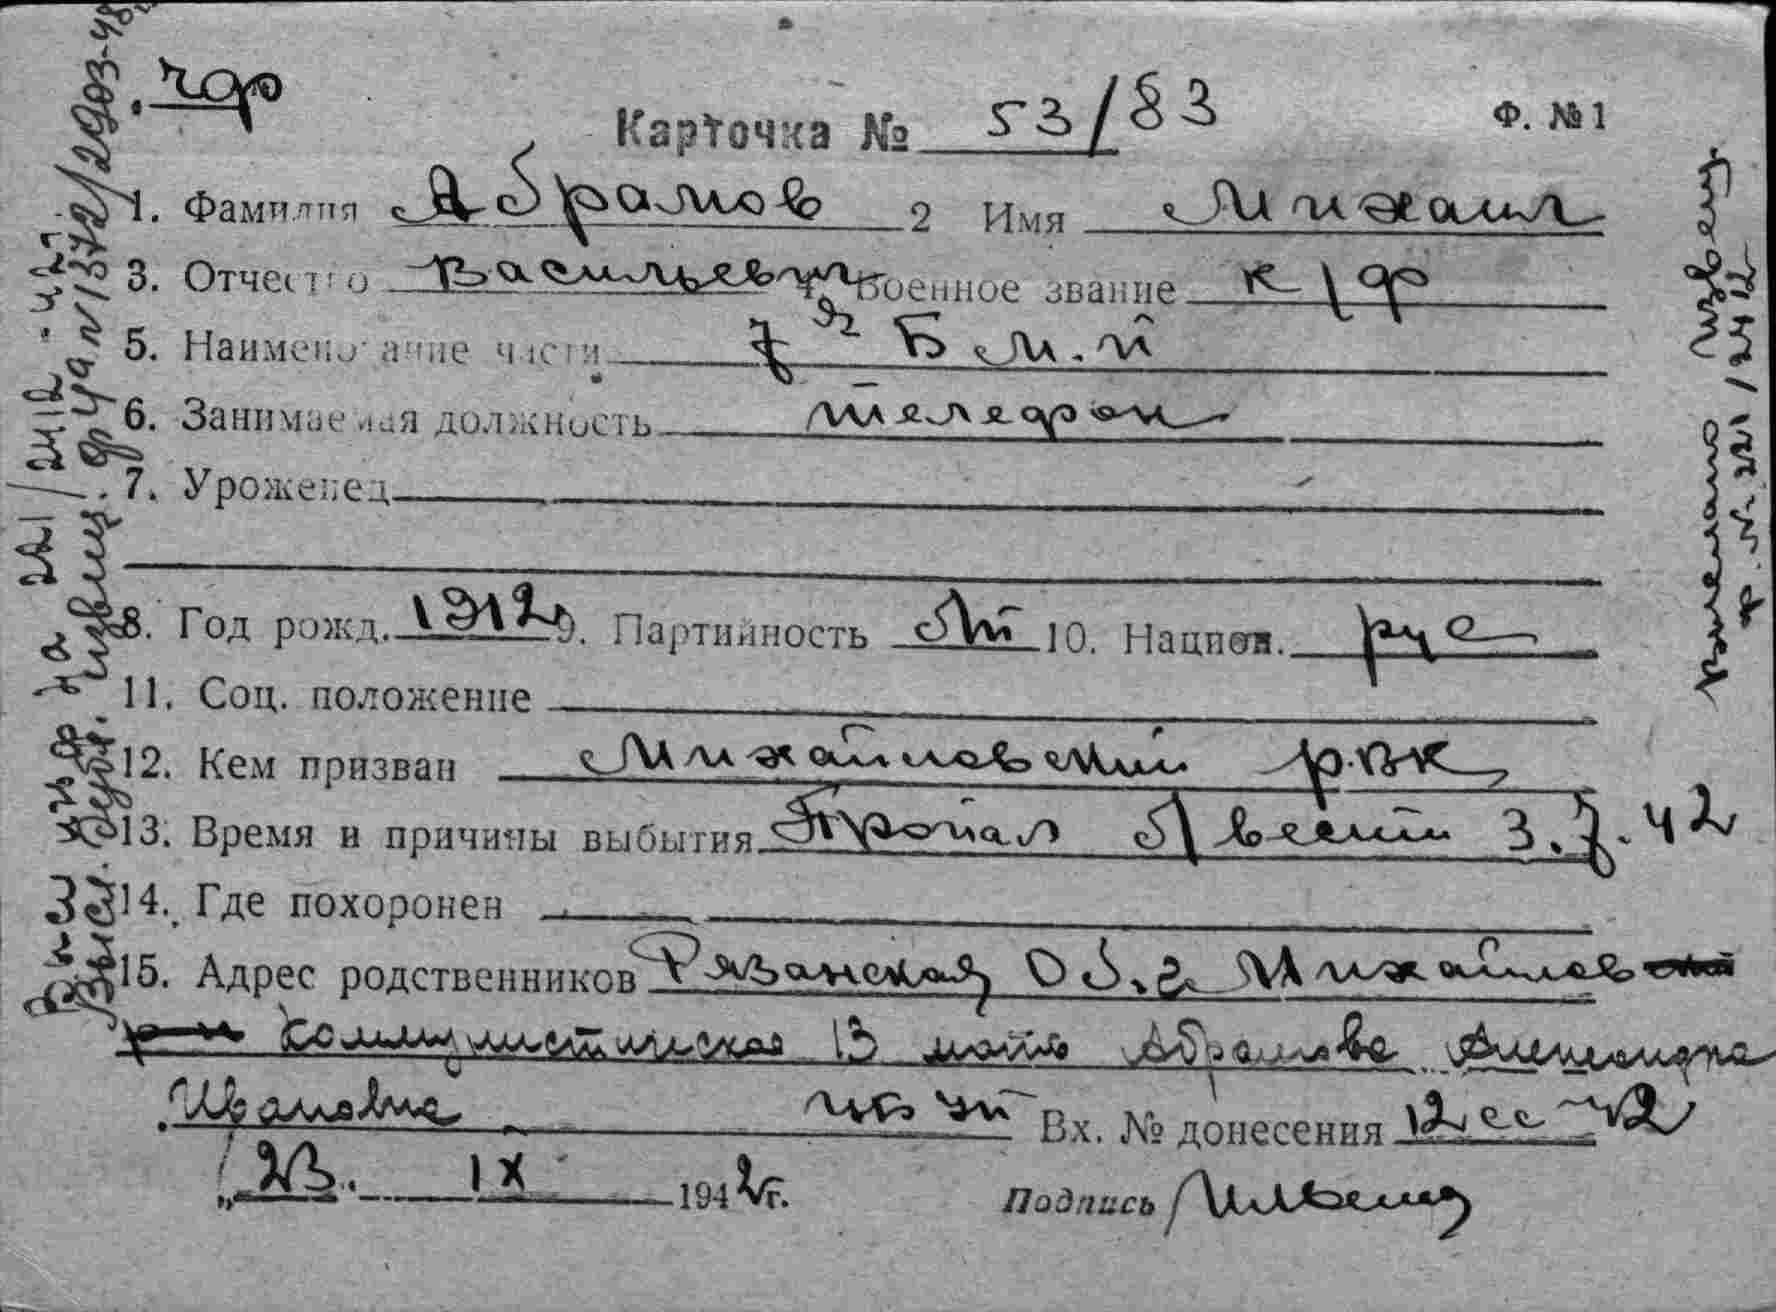 чф
Карточка № 53/83 Ф. №1
1. Фамилия Абрамов 2 Имя Михаил
3. Отчество Васильевич 4. Военное звание к/ф
5. Наименование части 7я Б М.П
6. Занимаемая должность телефон
7. Уроженец
8. Год рожд. 1912 9. Партийность б/п 10. Национ. рус
11. Соц. положение
12. Кем призван Михайловский РВК
13. Время и причины выбытия Пропал б/вести 3.7.42
14. Где похоронен
15. Адрес родственников Рязанская Об. г Михайловский
р-н Коммунистическая 13 мать Абрамова Александра
Ивановна Вх. № донесения 12сс 42
„23. IX 1942г. Подпись
на 221/2412-42г
Высл. дубл. извещ.
извещ.
ф. № 221/2412